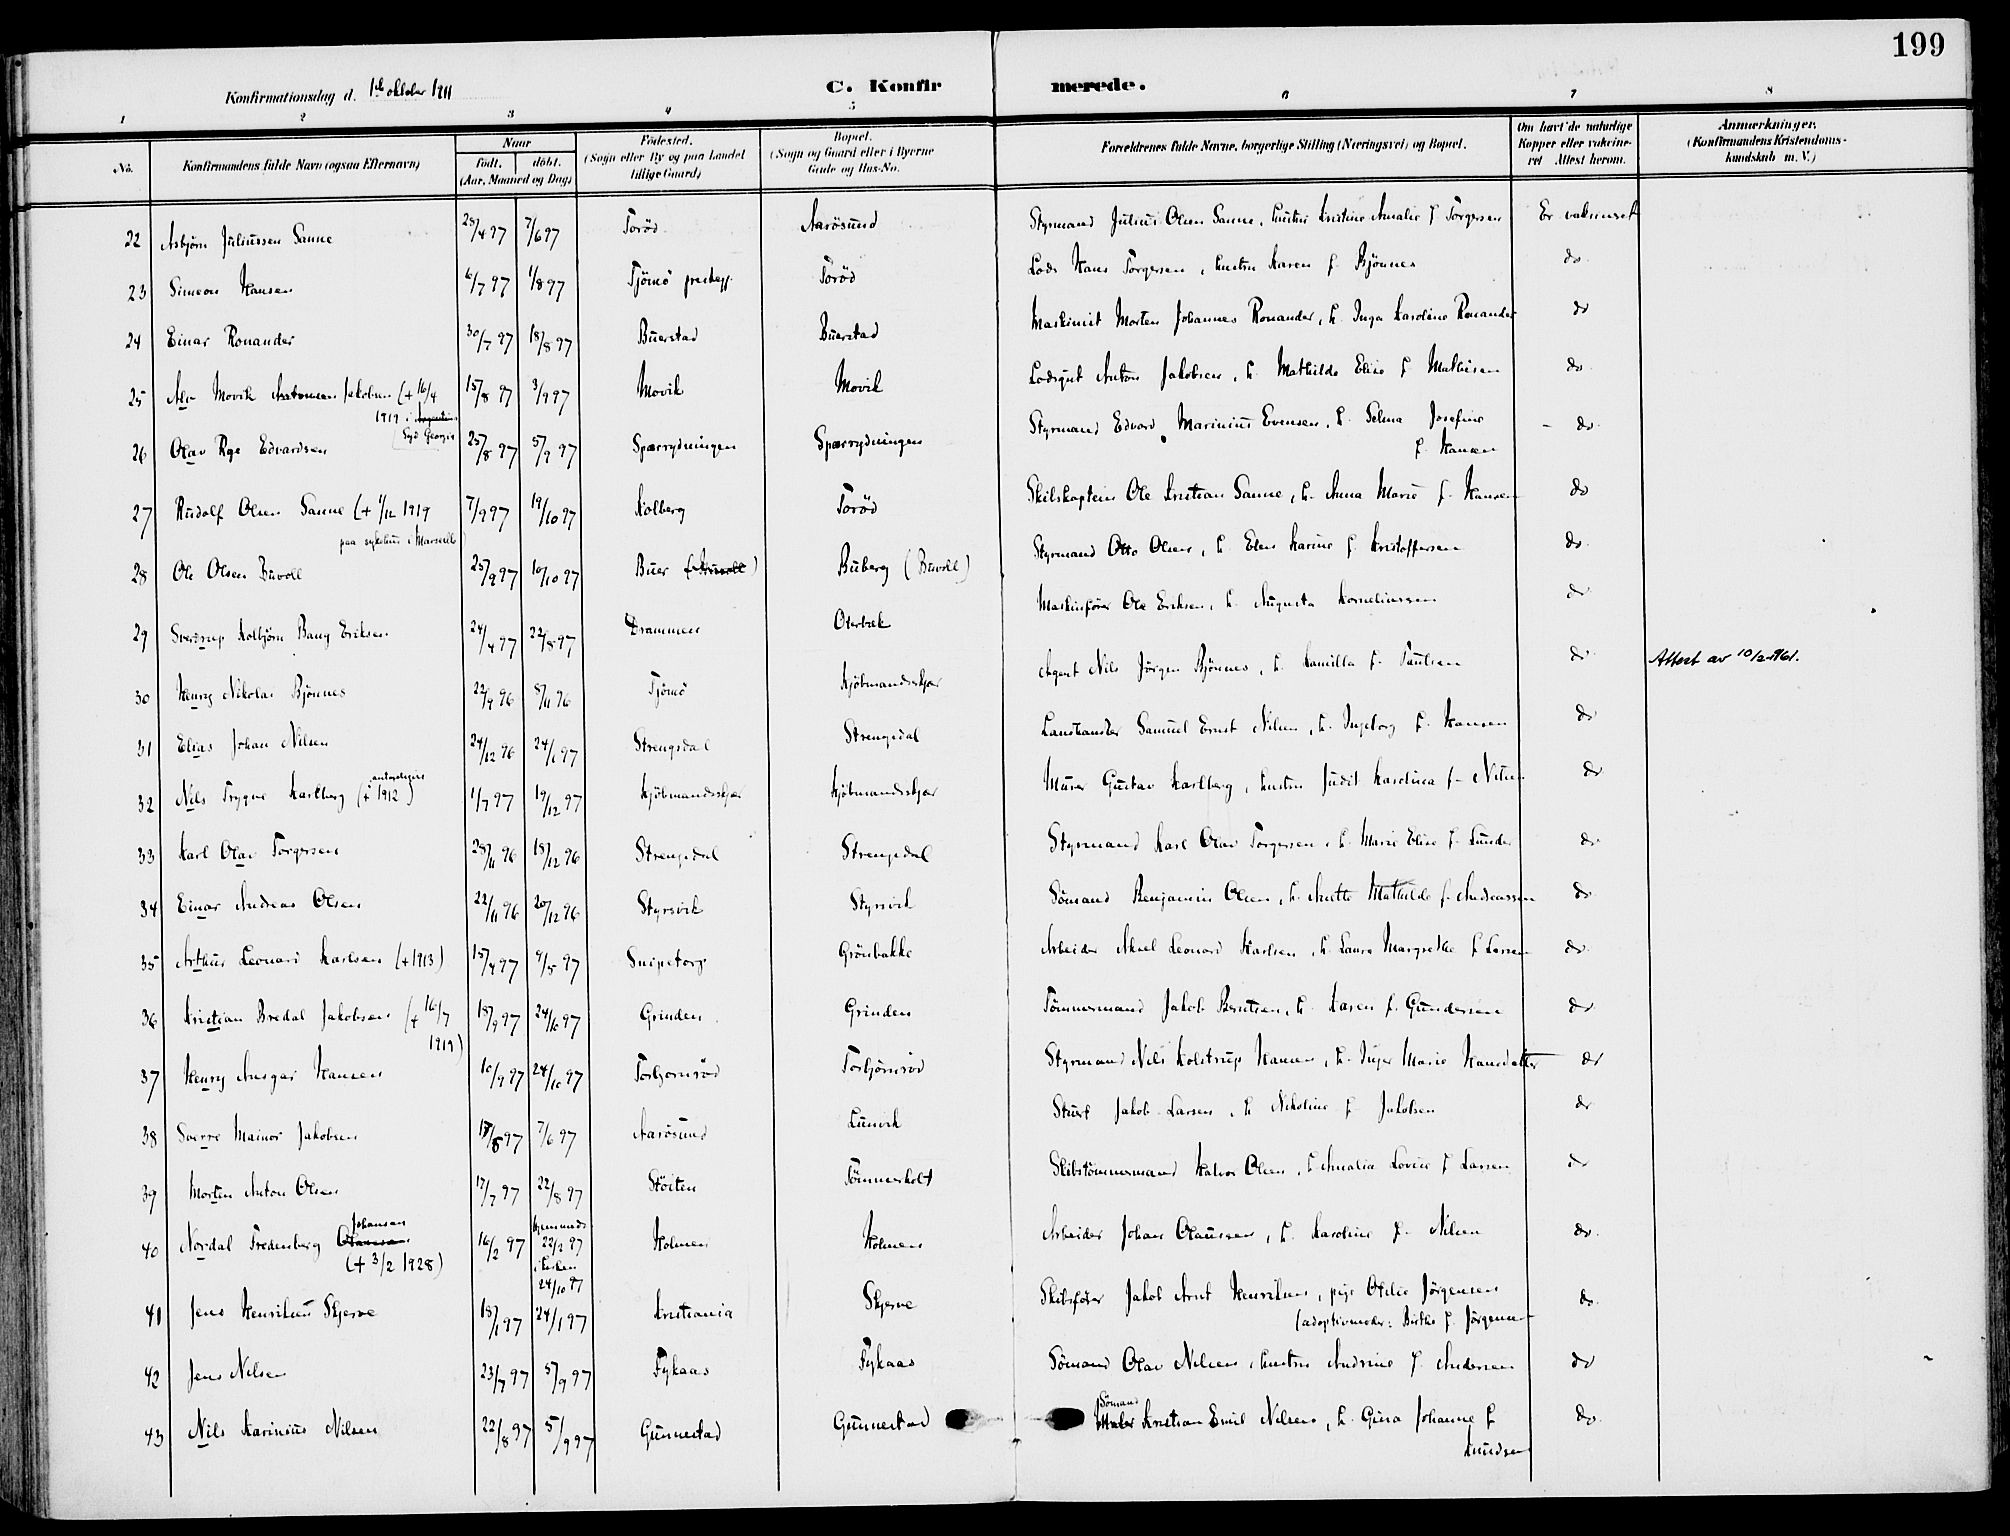 199
Konfirmationsdag d. 1ste oktober 1911
C. Konfirmerede.
1 2 3 4 5 6 7 8
No. Konfirmandens fulde Navn (ogsaa Efternavn) Naar født. døbt. (Aar, Maaned og Dag) Fødested. (Sogn eller By og paa Landet tillige Gaard) Bopæl. (Sogn og Gaard eller i Byerne Gade og Hus-No. Forældrenes fulde Navne, borgerlige Stilling (Næringsvei) og Bopæl. Om havt de naturlige Kopper eller vakcineret Attest herom. Anmærkninger. (Konfirmandens Kristendomskundskab m. V.)
22 Asbjørn Juliussen Sanne 28/4 97 7/6 97 Torød Aarøsund Styrmand Julius Olsen Sanne, hustru Kristine Amalie f. Torgersen Er vaksinert
23 Simeon Hansen 6/7 97 1/8 97 Tjømø prestegj. Torød Lods Hans Torgersen, hustru Karen f. Bjønnes do.
24 Einar Ronander 30/7 97 18/8 97 Buerstad Buerstad Maskinist Morten Johannes Ronander, h. Inga Karoline Ronander do
25 Alv Movik Antonsen Jakobsen (+ 16/4 15/8 97 3/9 97 Movik Movik Lodsgut Anton Jakobsen, h. Mathilde Elise f. Mathisen do.
1919 i Argentina
Syd Georgia
26 Olav Roe Edvardsen 25/8 97 5/9 97 Spærrydningen Spærrydningen Styrmand Edvard Marinius Evensen, h. Selma Josefine - do.
f. Hansen
27 Rudolf Olsen Sanne (+ 1/12 1919 7/9 97 19/10 97 Kolberg Torød Skibskaptein Ole Kristian Sanne, h. Anna Marie f. Hansen do
paa sykehus i Marseille)
28 Ole Olsen Buvoll 25/9 97 10/10 97 Buer (Buvoll) Buberg (Buvoll) Styrmand Otto Olsen, h. Elen Karine f. Kristoffersen do.
29 Sverdrup Kolbjørn Bang Eriksen 24/4 97 22/8 97 Drammen Oterbæk Maskinfører Ole Eriksen, h. Augusta Korneliussen do
30 Henry Nikolai Bjønnes 22/9 96 8/11 96 Tjømø Kjøbmandsskjær Agent Nils Jørgen Bjønnes, h. Kamilla f. Paulsen do Attest av 10/2-1961.
31 Elias Johan Nilsen 24/12 96 24/1 97 Strengsdal Strengsdal Samuel Ernst Nilsen, h. Ingeborg f. Hansen do
32 Nils Trygve Karlberg (+ 1912) 1/7 97 19/12 97 Kjøbmandsskjær Kjøbmandsskjær Murer Gustav Karlberg, hustru Judit Karolina f. Nilsen do
33 Karl Olav Torgersen 28/11 96 18/12 96 Strengsdal Strengsdal Styrmand Karl Olav Torgersen, h. Marie Elise f. Lunde do
34 Einar Andreas Olsen 22/11 96 20/12 96 Styrsvik Styrsvik Sømand Benjamin Olsen, h. Anette Mathilde f. Andreassen do
35 Arthur Leonard Karlsen (+ 1913) 15/4 97 9/5 97 Snipetorp Grønbakke Arbeider Aksel Leonard Karlsen, h. Laura Margrethe f. Larsen do.
36 Kristian Bredal Jakobsen (+ 16/7 18/9 97 24/10 97 Grinden Grinden Tømmermand Jakob Berntsen, h. Karen f. Gundersen do
1919)
37 Henry Ansgar Hansen 10/9 97 24/10 97 Torbjørnrød Torbjørnrød Styrmand Nils Kolstrup Hansen, h. Inger Marie Hansdatter do
38 Sverre Mainor Jakobsen 17/5 97 7/6 97 Aarøsund Lunvik Stuert Jakob Larsen, h. Nikoline f. Jakobsen do
39 Morten Anton Olsen 17/7 97 22/8 97 Støiten Tømmerholt Skibstømmermand Halvor Olsen, h. Amalia Lovise f. Larsen do
Johansen hjemmed.
40 Nordal Fredenberg Olaussen 16/2 97 22/2 97 Holmen Holmen Arbeider Johan Olaussen, h. Karoline f. Nilsen do.
(+ 3/2 1928) i kirken
24/10 97
41 Jens Henriksen Skjerve 18/1 97 24/1 97 Kristiania Skjerve Skibsfører Jakob Arnt Henriksen, pige Otilie Jørgensen do.
(adoptivmoder: Birthe f. Jørgensen
42 Jens Nilsen 23/7 97 5/9 97 Fykaas Fykaas Sømand Olav Nilsen, hustru Andrine f. Andersen do
Sømand
43 Nils Karinius Nilsen 22/8 97 5/9 97 Gunnestad Gunnestad Maler Kristian Emil Nilsen, h. Gina Johanne f. do.
Knudsen